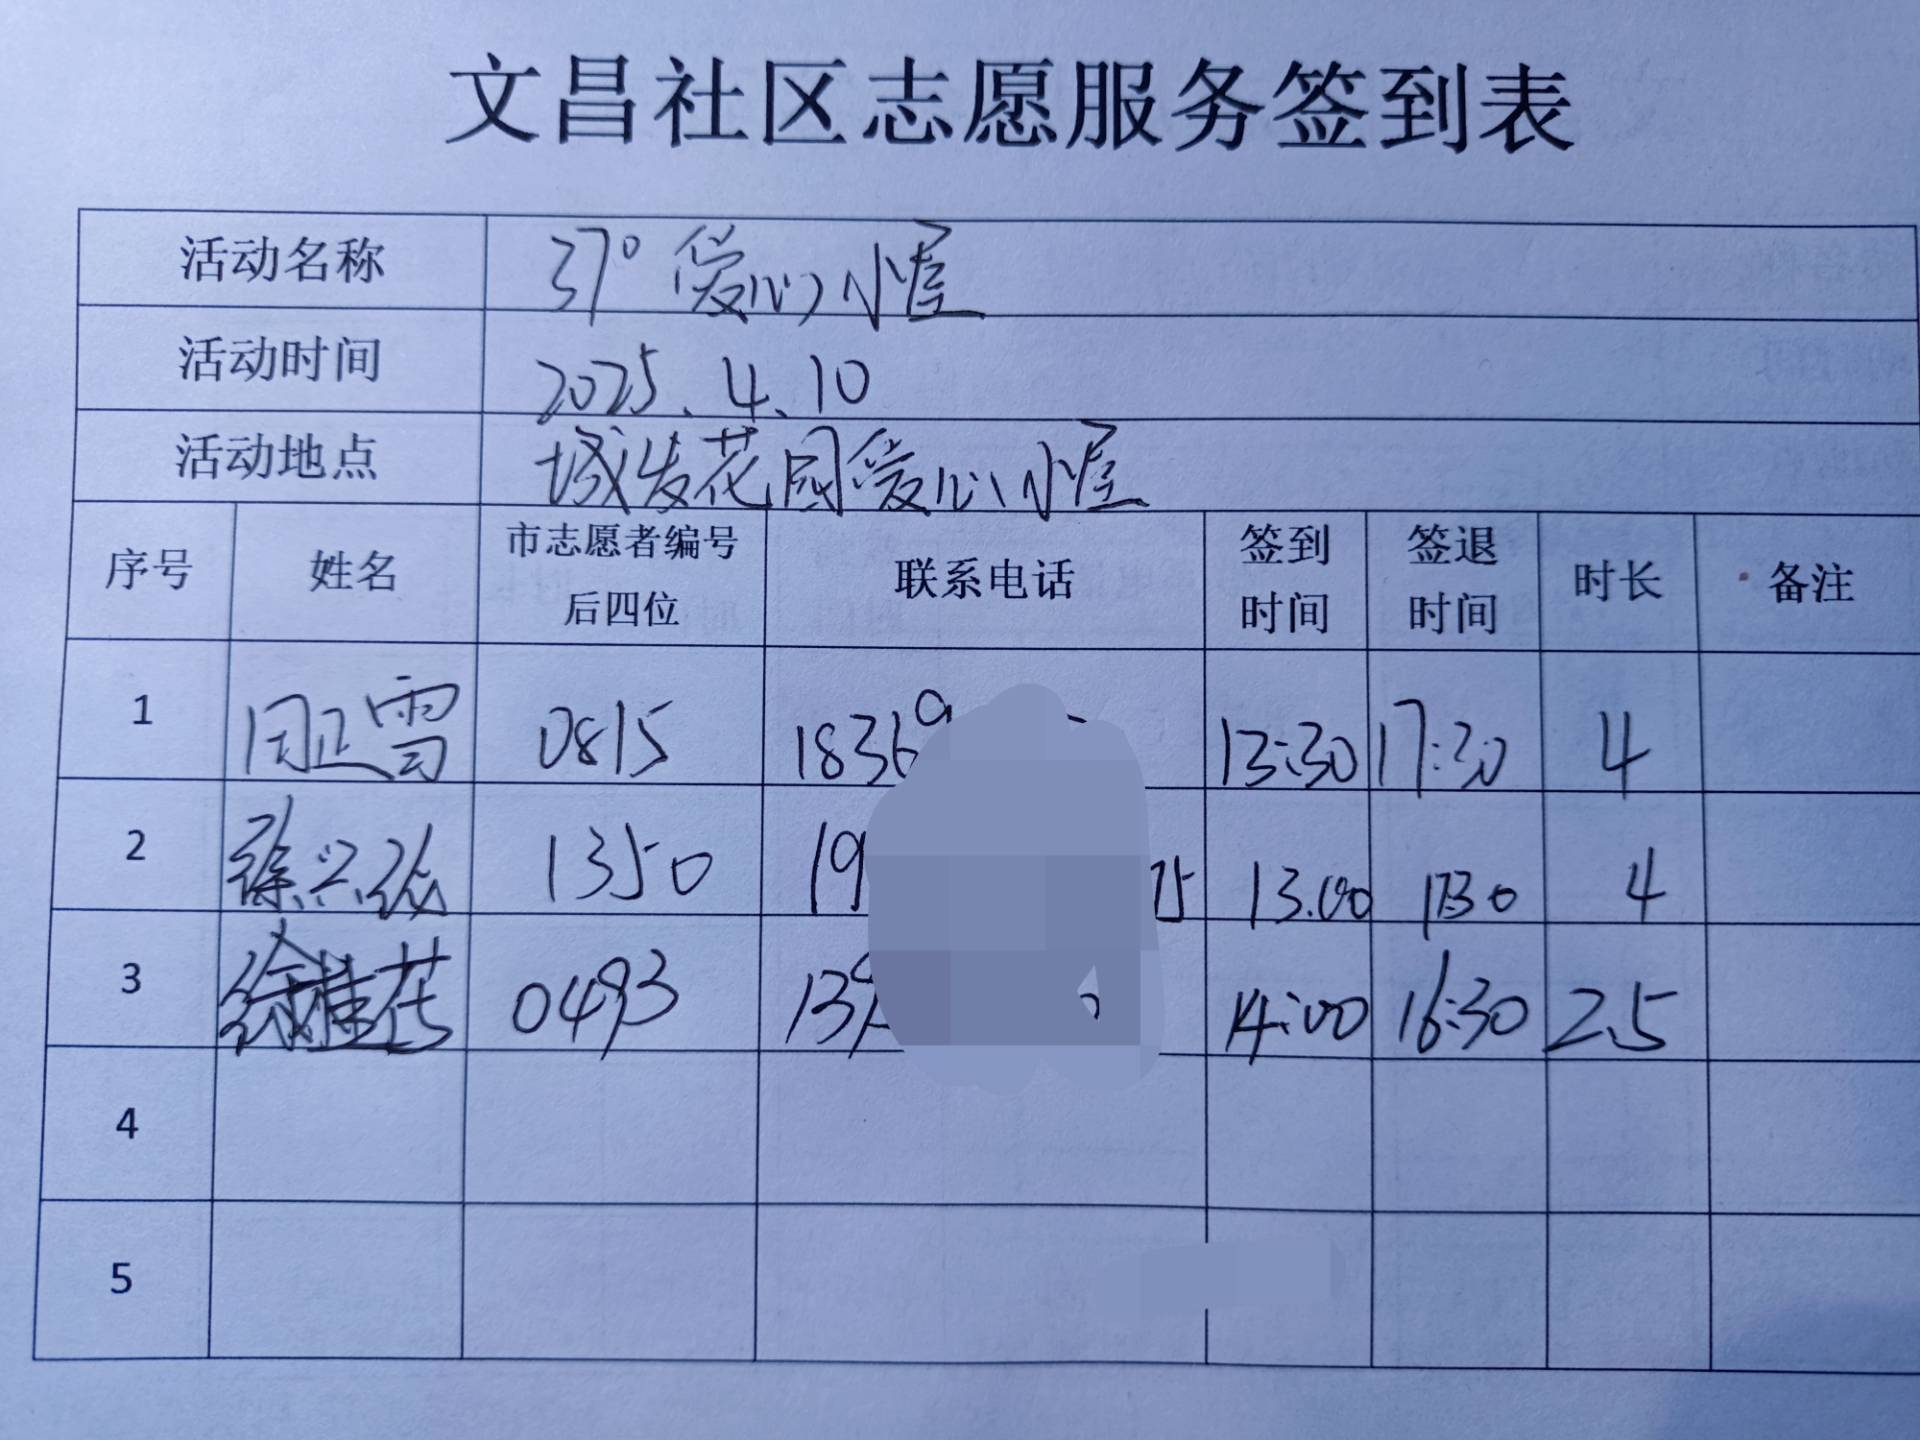 文昌社区志愿服务签到表
活动名称 37° 爱心小屋
活动时间 2025.4.10
活动地点 城发花园爱心小屋
序号 姓名 市志愿者编号后四位 联系电话 签到时间 签退时间 时长 备注
1 闫正雪 0815 1836 13:30 17:30 4
2 徐 1350 19 75 13.00 1730 4
3 徐桂花 0493 139 14:00 16:30 2.5
4
5